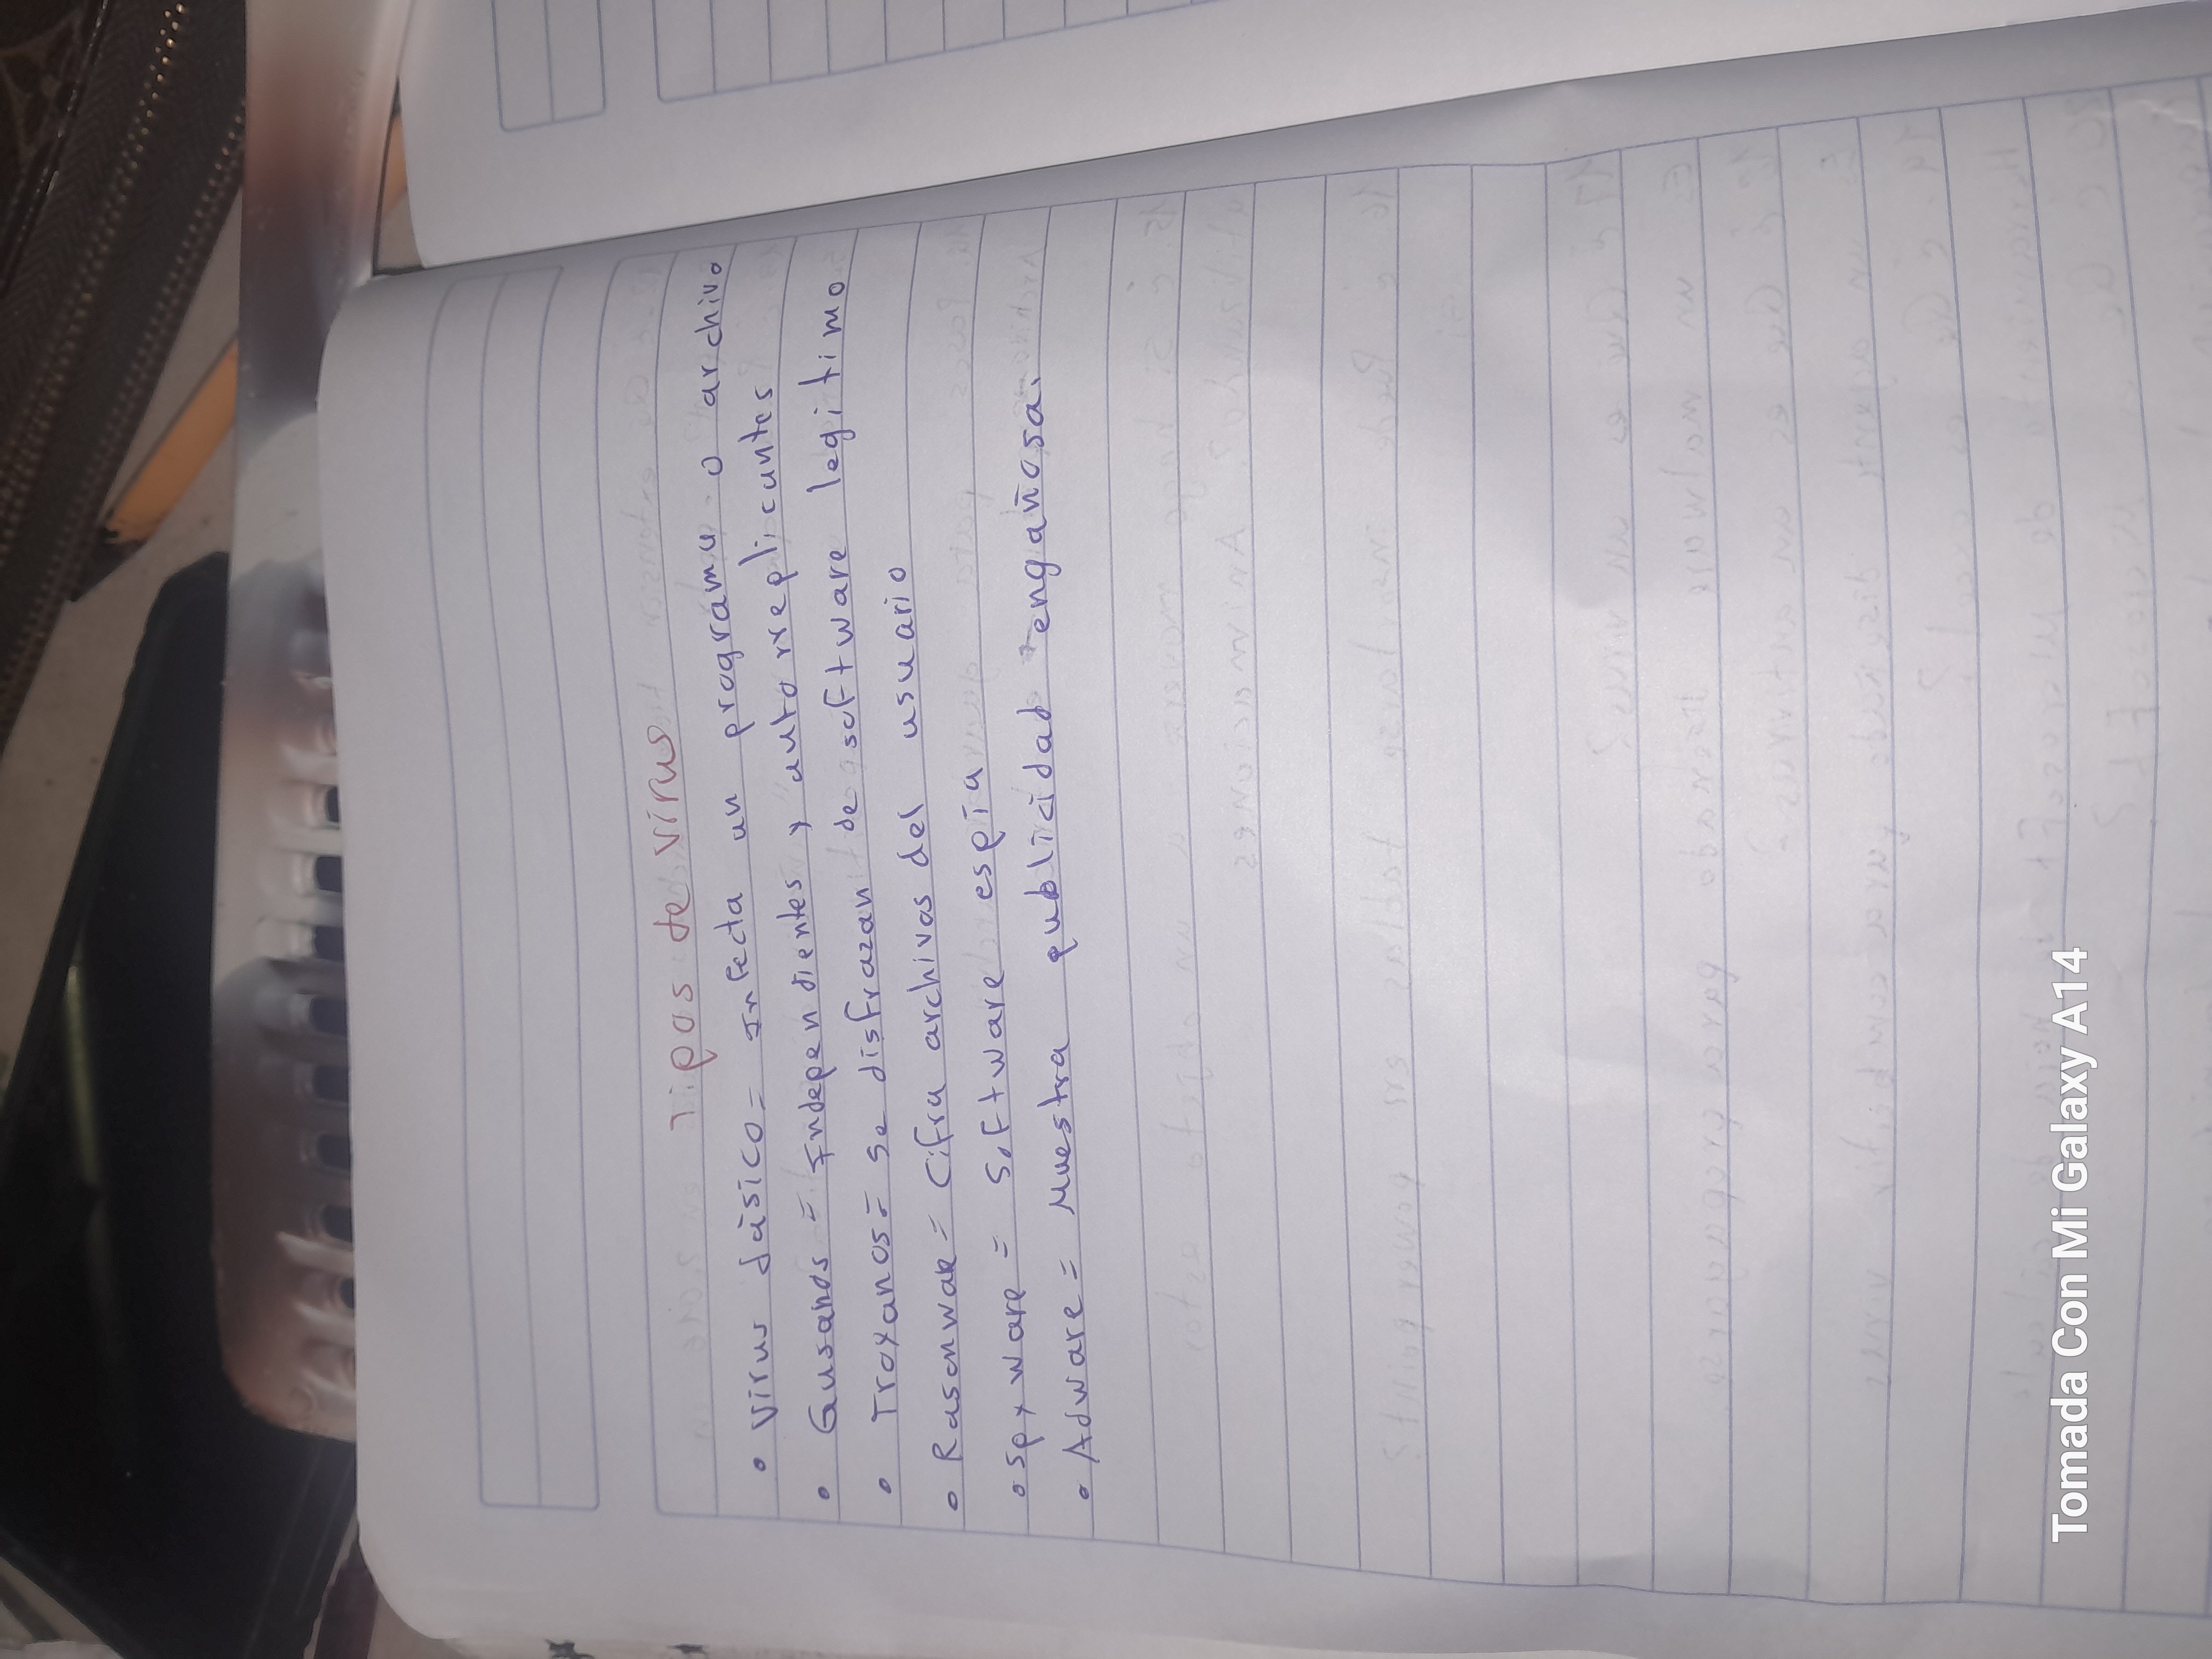 Tipos de virus
• Virus clásico = Infecta un programa o archivo
• Gusanos = Independientes y autorreplicantes
• Troyanos = Se disfrazan de software legitimo
• Rasonware = Cifra archivos del usuario
• Spyware = Software espía
• Adware = Muestra publicidad engañosa.
Tomada Con Mi Galaxy A14